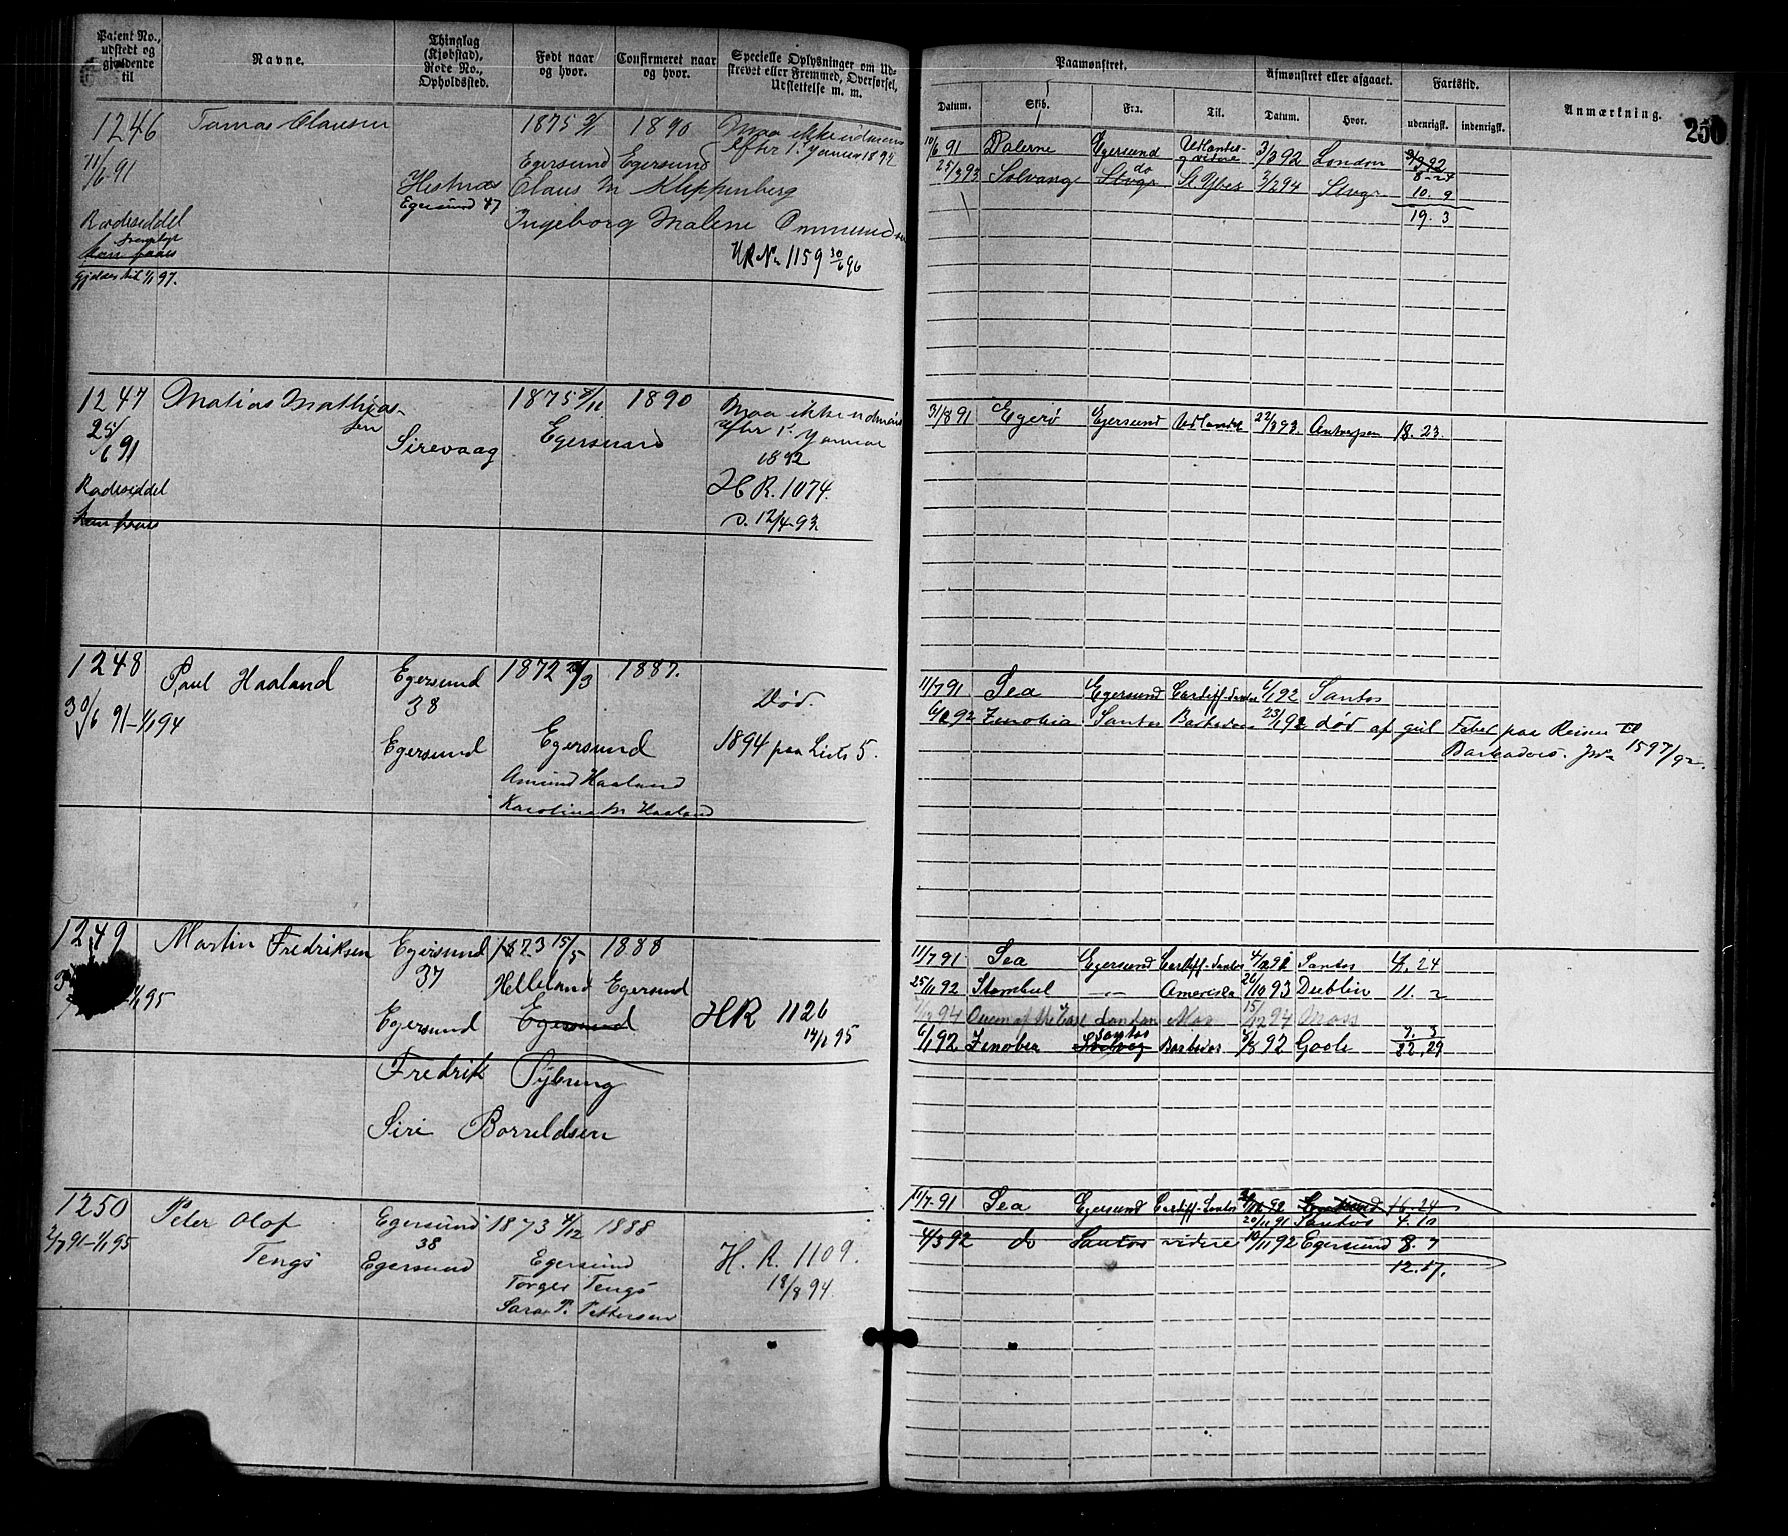 Patent No., udstedt og gjældende til
Navne.
Thinglag (Kjøbstad), Rode No., Opholdssted.
Født naar og hvor.
Confirmeret naar og hvor.
Specielle Oplysninger om Udstrevet eller Fremmed, Overførsel, Udslettelse m. m.
Paamønstret.
Afmønstret eller afgaaet.
Fartstid.
Anmærkning.
Datum.
Skib.
Fra.
Til.
Datum.
Hvor.
udenrigsk.
indenrigsk.
250
1246 Tomas Clausen 1875 1890 Maa ikke udmøns
11/6 91 Egersund Egersund efter 1. Januar 1894
Hestnæs Claus M Klippenberg
Egersund 47
Rodeseddel Ingeborg Malene Ommundsen
kan faaes
Gjelder til 1/1 97. HR No 1159 30/6 96
10/6 91 Palerne Egersund Udlandet 3/3 92 London
og videre 8-24
25/3 93 Solvang Stvgr do St Ybes 3/2 94 Stvgr 10. 9
19. 3
1247 Matias Mathias- 1875 1890 Maa ikke udmøns
sen efter 1. Januar
25/6 91 Sirevaag Egersund 1892
Rodeseddel HR. 1074.
kan faaes d. 12/4 93.
31/8 91 Egerö Egersund Udlandet 22/3 93. Antverpen 18. 23.
1248 Paul Haaland Egersund 1872 1887.
38 Død.
30/6 91-1/1 94
Egersund Egersund 1894 paa Liste 5.
Amund Haaland
Karoline M Haaland
11/7 91 Sea Egersund Cardiff-Santos 6/1 92 Santos
6/1 92 Zenobia Santos Barbados 23/1 92 død af gul Feber paa Reisen til
Barbados. Jno 1597/92.
1249 Martin Fredriksen Egersund 1873 15/5 1888
37 Helleland Egersund
1/1 95 Egersund Egersund HR 1126
14/6 95
Fredrik Nybung
Siri Borreldsen
11/7 91 Sea Egersund Cardiff-Santos Santos 4. 24
25/11 92 Stambul -"- Amerika 26/10 93 Dublin 11. 2
94 Queen of the East London Mos 15/12 94 Moss
6/1 92 Zenobia Santos Barbados 92 Goole 7. 3
22. 29
1250 Peter Olof Egersund 1873 4/12 1888
Tengs 38
2/7 91-1/1 95 Egersund Egersund H. R. 1109.
Torger Tengs 18/8 94.
Sara P. Pettersen
11/7 91 Sea Egersund Cardiff-Santos Egersund 16. 24
20/11 91 Santos 4. 10
4/3 92 do Santos videre 10/11 92 Egersund 8. 7
12. 17.